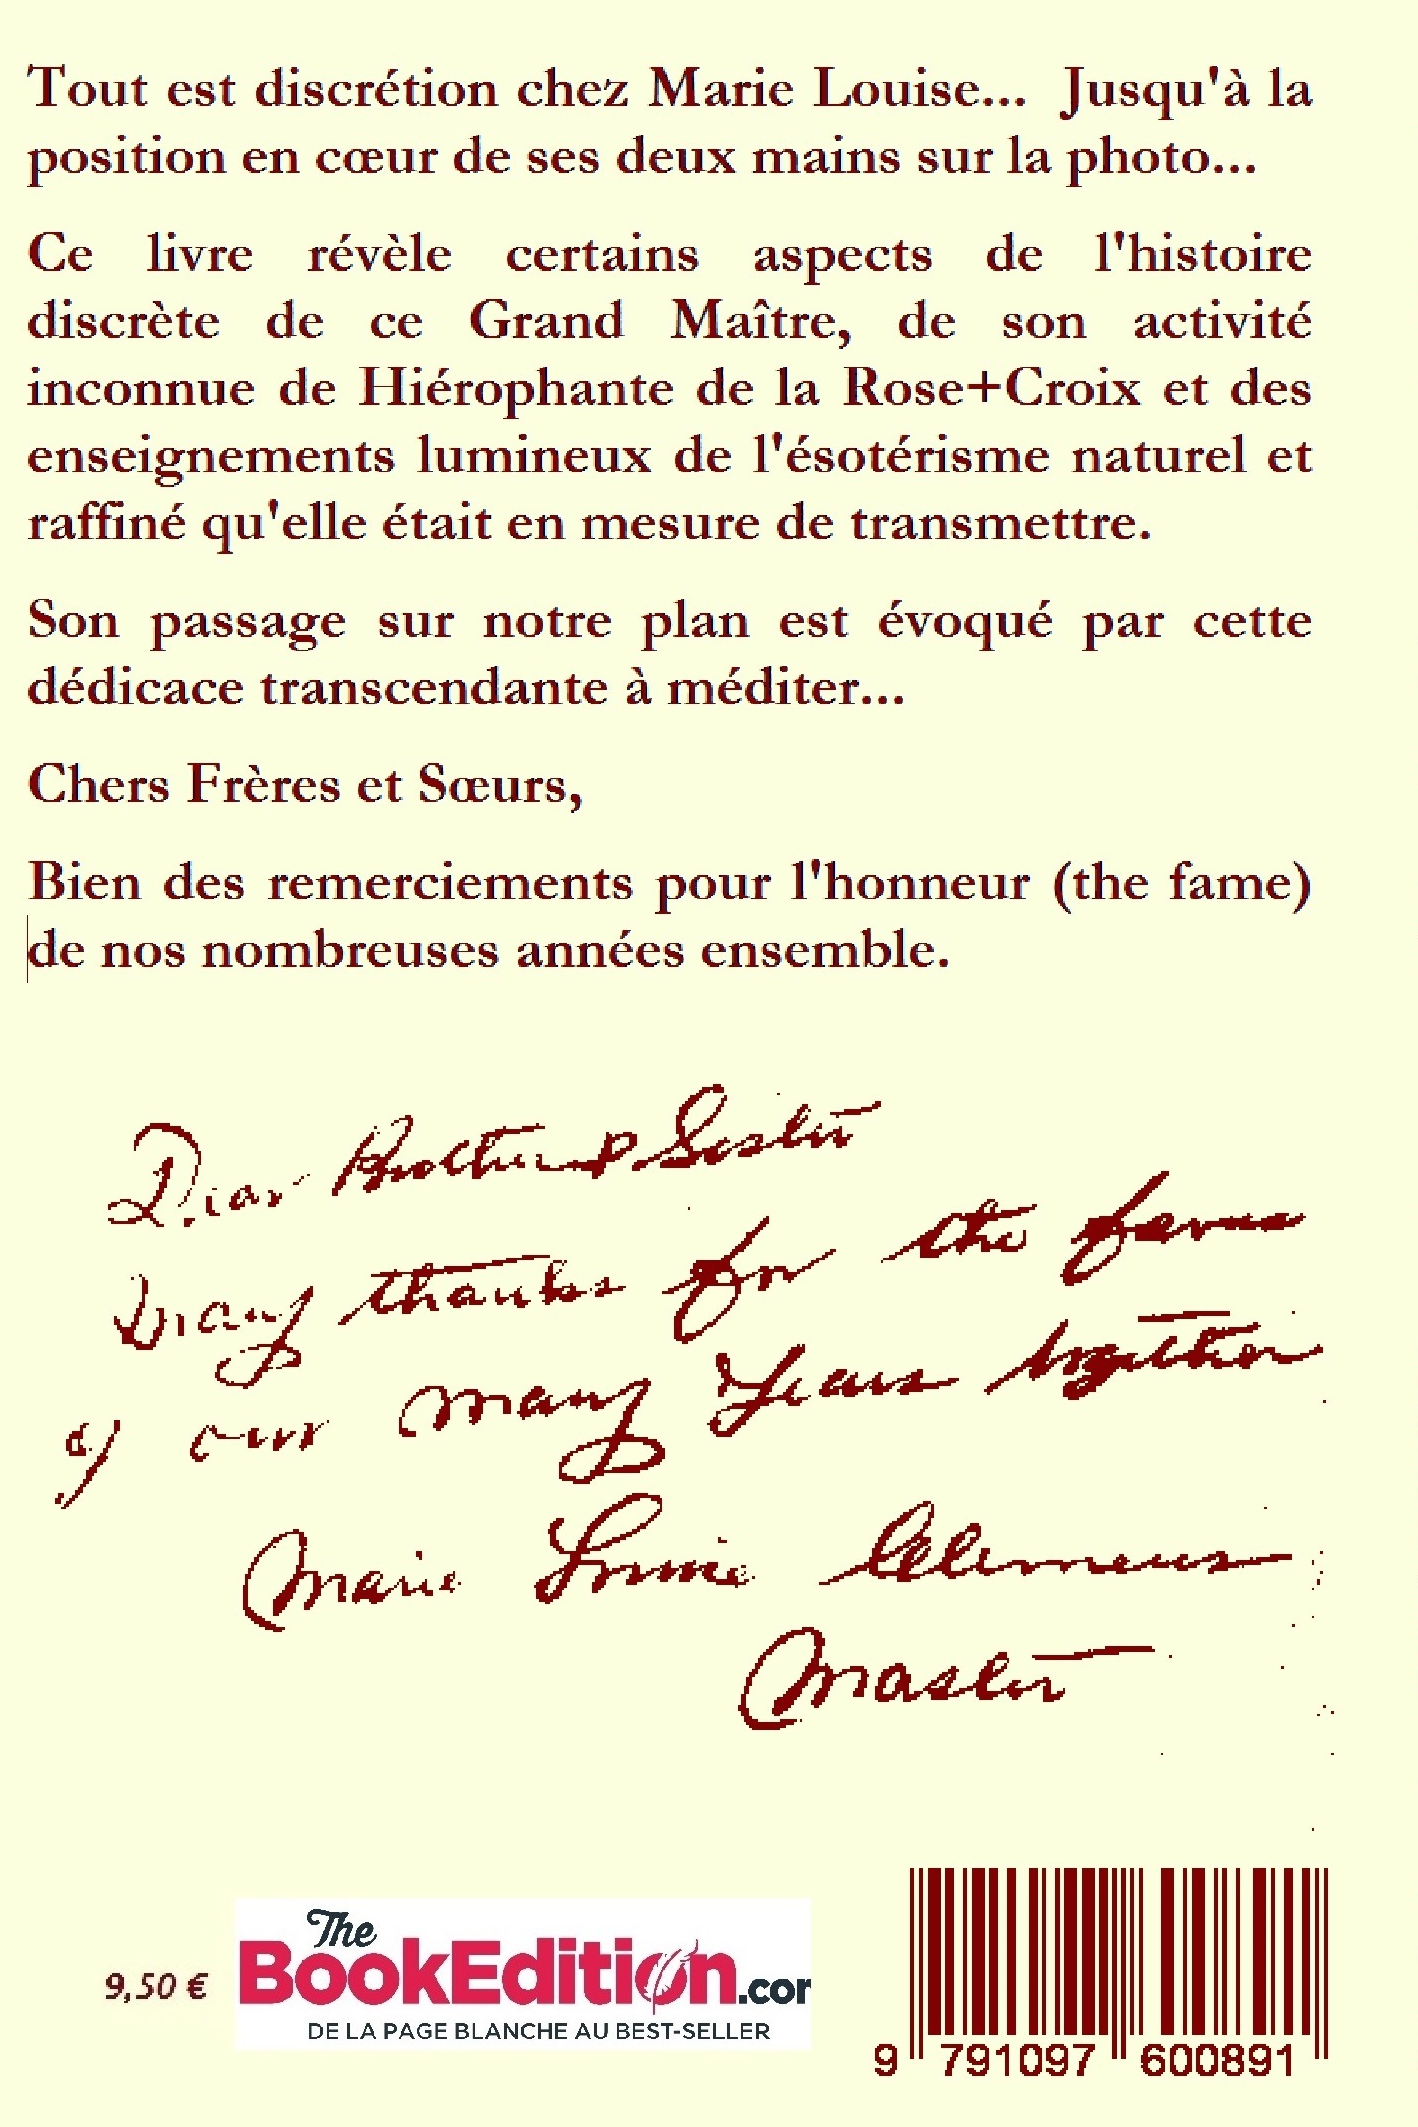 Tout est discrétion chez Marie Louise... Jusqu'à la
position en cœur de ses deux mains sur la photo...
Ce livre révèle certains aspects de l'histoire
discrète de ce Grand Maître, de son activité
inconnue de Hiérophante de la Rose+Croix et des
enseignements lumineux de l'ésotérisme naturel et
raffiné qu'elle était en mesure de transmettre.
Son passage sur notre plan est évoqué par cette
dédicace transcendante à méditer...
Chers Frères et Sœurs,
Bien des remerciements pour l'honneur (the fame)
de nos nombreuses années ensemble.
Dear Brother & Sister
Many thanks for the fame
of our many years together
Marie Louise Clemens
Master
9,50 €
The
BookEdition.cor
DE LA PAGE BLANCHE AU BEST-SELLER
9 791097 600891